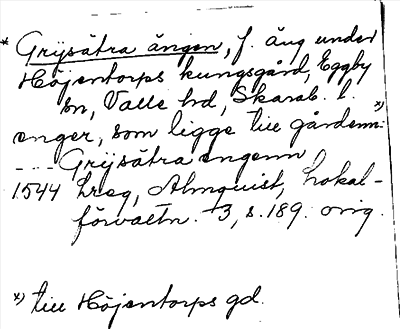 * Grijsätra ängen, f. äng under
Höjentorps kungsgård, Eggby
sn, Valle hd, Skarab. l.
enger, som ligge till gårdenn: x)
--- Grijsätra engenn
1544 Lreg, Almquist, Lokal-
förvaltn. 3, s. 189. orig.
x) till Höjentorps gd.